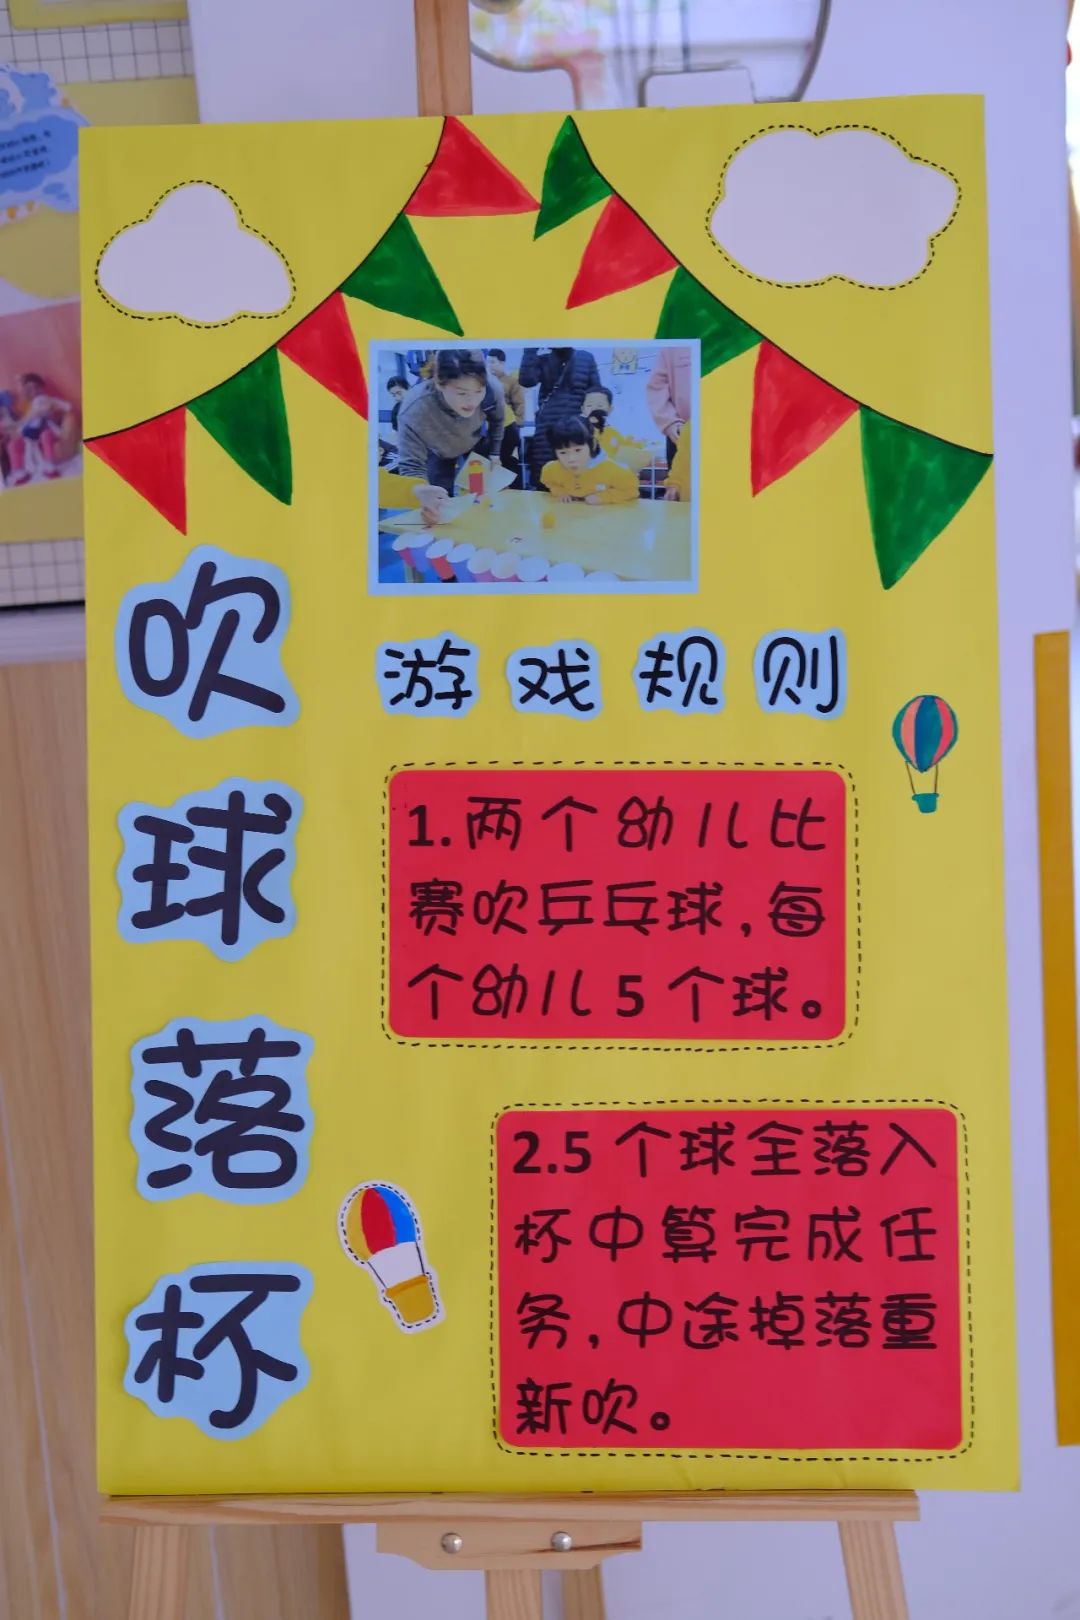 吹球落杯
游戏规则
1.两个幼儿比
赛吹乒乓球,每
个幼儿5个球。
2.5个球全落入
杯中算完成任
务,中途掉落重
新吹。